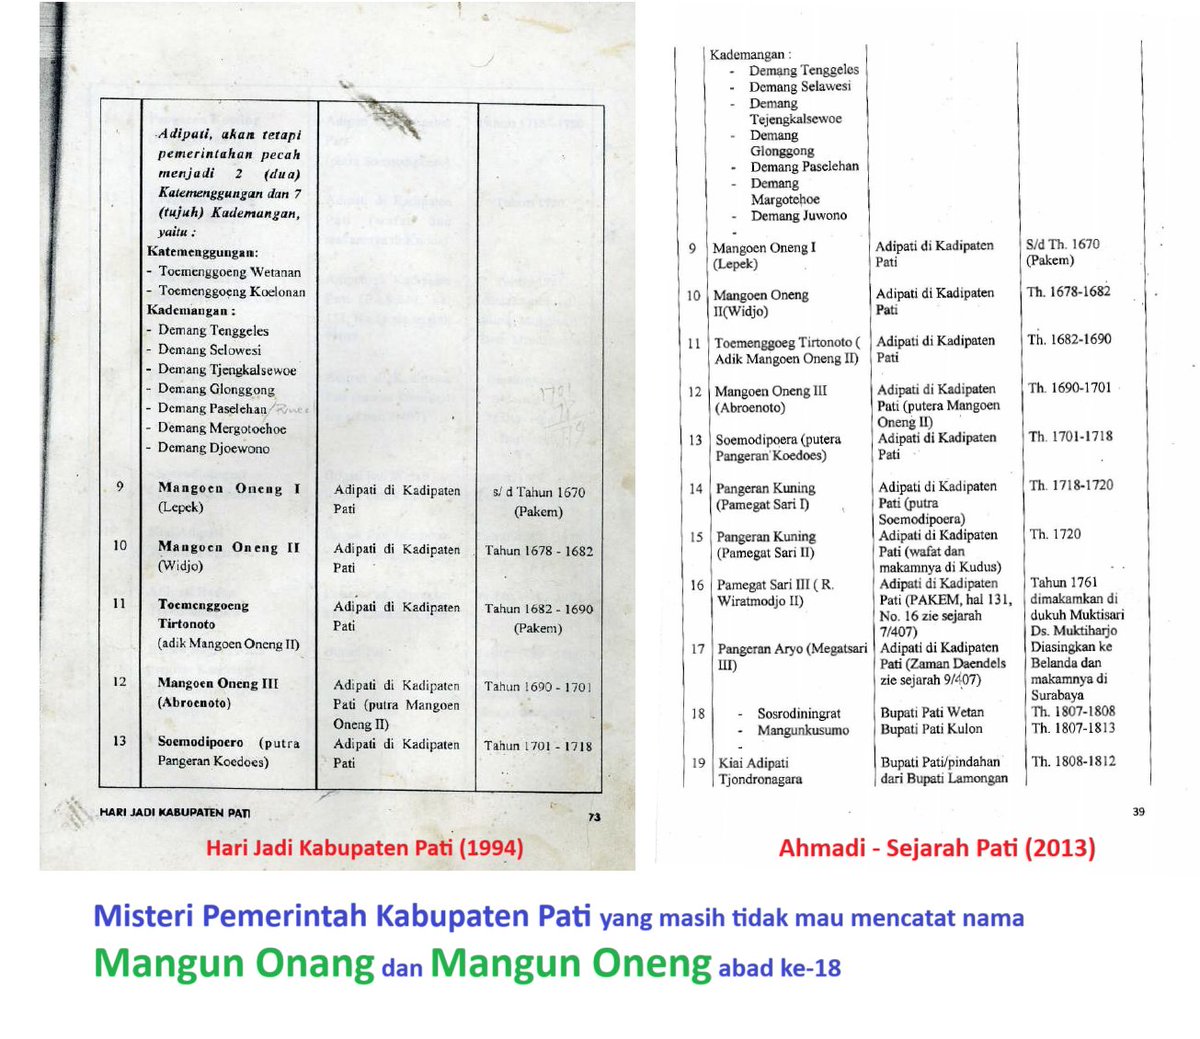 Adipati, akan tetapi
pemerintahan pecah
menjadi 2 (dua)
Katemenggungan dan 7
(tujuh) Kademangan,
yaitu :
Katemenggungan:
- Toemenggoeng Wetanan
- Toemenggoeng Koelonan
Kademangan :
- Demang Tenggeles
- Demang Selowesi
- Demang Tjengkalsewoe
- Demang Glonggong
- Demang Paselehan
- Demang Mergotoehoe
- Demang Djoewono
9 Mangoen Oneng I Adipati di Kadipaten s/ d Tahun 1670
(Lepek) Pati (Pakem)
10 Mangoen Oneng II Adipati di Kadipaten Tahun 1678 - 1682
(Widjo) Pati
11 Toemenggoeng Adipati di Kadipaten Tahun 1682 - 1690
Tirtonoto Pati (Pakem)
(adik Mangoen Oneng II)
12 Mangoen Oneng III Adipati di Kadipaten Tahun 1690 - 1701
(Abroenoto) Pati (putra Mangoen
Oneng II)
13 Soemodipoero (putra Adipati di Kadipaten Tahun 1701 - 1718
Pangeran Koedoes) Pati
HARI JADI KABUPATEN PATI 73
Hari Jadi Kabupaten Pati (1994)
Kademangan :
- Demang Tenggeles
- Demang Selawesi
- Demang
Tejengkalsewoe
- Demang
Glonggong
- Demang Paselehan
- Demang
Margotehoe
- Demang Juwono
-
9 Mangoen Oneng I Adipati di Kadipaten S/d Th. 1670
(Lepek) Pati (Pakem)
10 Mangoen Oneng Adipati di Kadipaten Th. 1678-1682
II(Widjo) Pati
11 Toemenggoeg Tirtonoto ( Adipati di Kadipaten Th. 1682-1690
Adik Mangoen Oneng II) Pati
12 Mangoen Oneng III Adipati di Kadipaten Th. 1690-1701
(Abroenoto) Pati (putera Mangoen
Oneng II)
13 Soemodipoera (putera Adipati di Kadipaten Th. 1701-1718
Pangeran Koedoes) Pati
14 Pangeran Kuning Adipati di Kadipaten Th. 1718-1720
(Pamegat Sari I) Pati (putra
Soemodipoera)
15 Pangeran Kuning Adipati di Kadipaten Th. 1720
(Pamegat Sari II) Pati (wafat dan
makamnya di Kudus)
16 Pamegat Sari III ( R. Adipati di Kadipaten Tahun 1761
Wiratmodjo II) Pati (PAKEM, hal 131, dimakamkan di
No. 16 zie sejarah dukuh Muktisari
7/407) Ds. Muktiharjo
17 Pangeran Aryo (Megatsari Adipati di Kadipaten Diasingkan ke
III) Pati (Zaman Daendels Belanda dan
zie sejarah 9/407) makamnya di
Surabaya
18 - Sosrodiningrat Bupati Pati Wetan Th. 1807-1808
- Mangunkusumo Bupati Pati Kulon Th. 1807-1813
-
19 Kiai Adipati Bupati Pati/pindahan Th. 1808-1812
Tjondronagara dari Bupati Lamongan
39
Ahmadi - Sejarah Pati (2013)
Misteri Pemerintah Kabupaten Pati yang masih tidak mau mencatat nama
Mangun Onang dan Mangun Oneng abad ke-18